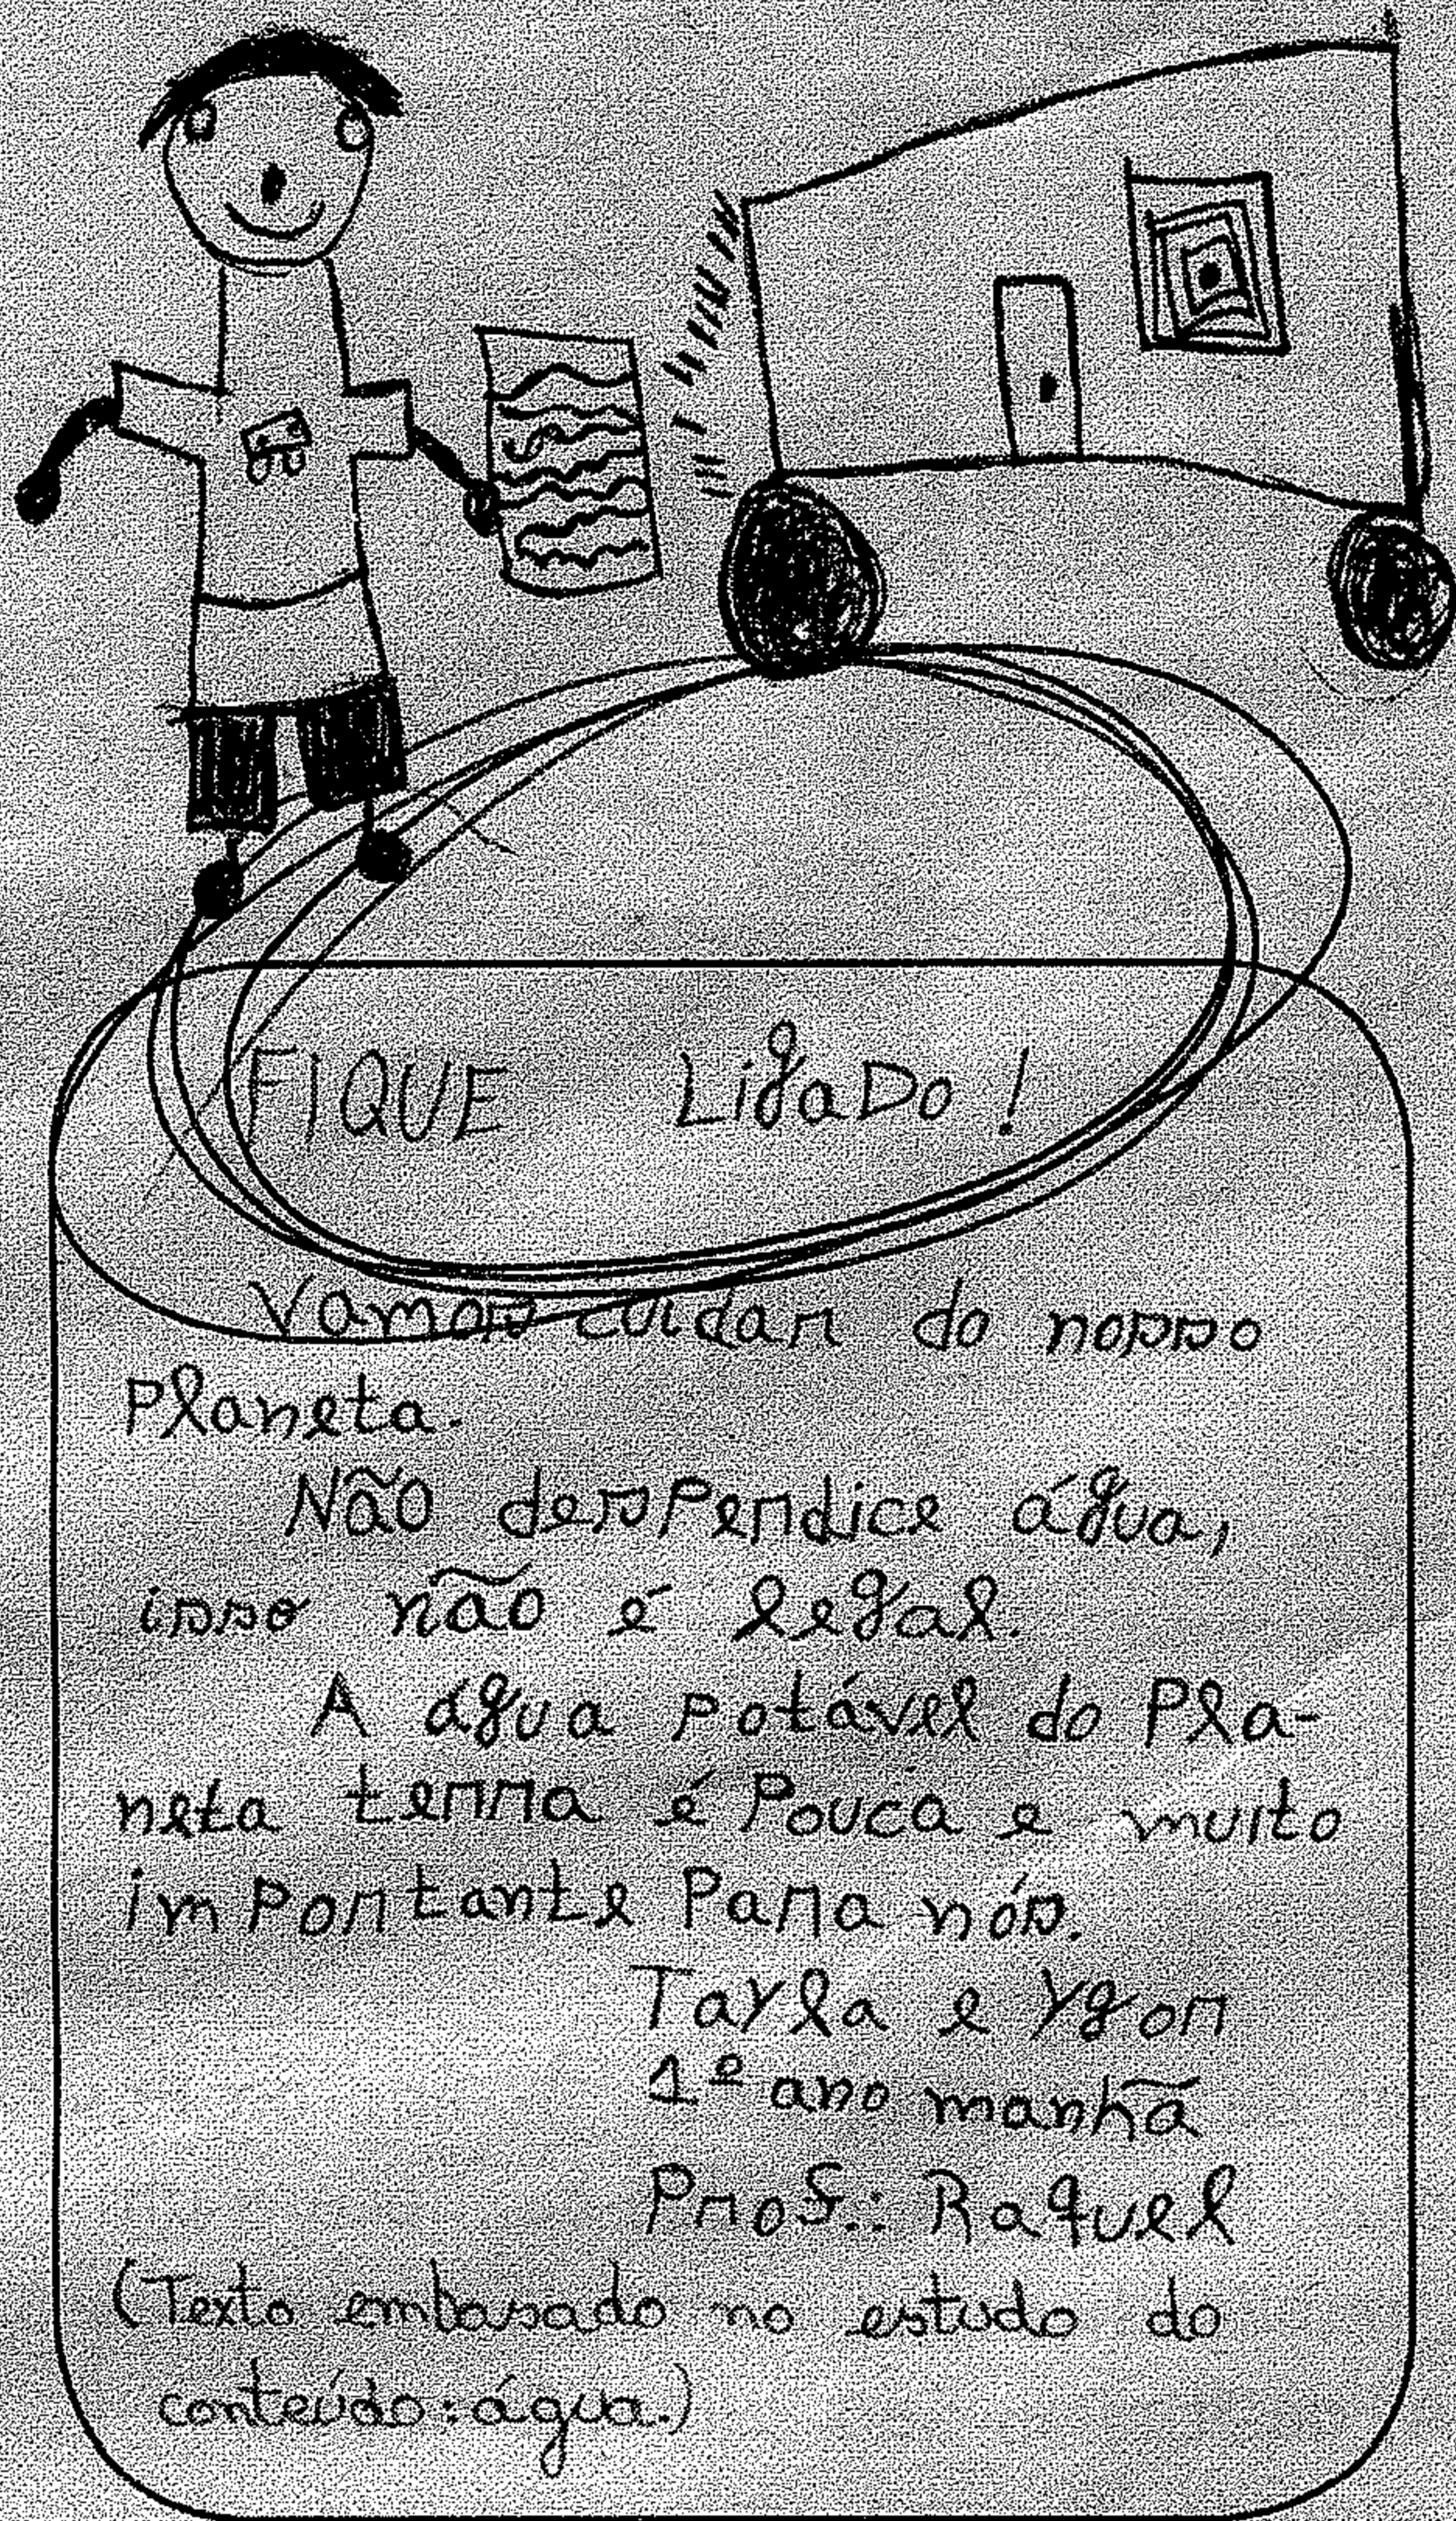 FIQUE LigaDo!
Vamos cuidar do nosso
Planeta.
Não desPerdice água,
isso não é legal.
A água potável do Pla-
neta terra é Pouca e muito
imPortante Para nós.
Tayla e Ygor
1º ano manhã
Prof.: Raquel
(Texto embasado no estudo do
conteúdo: água.)